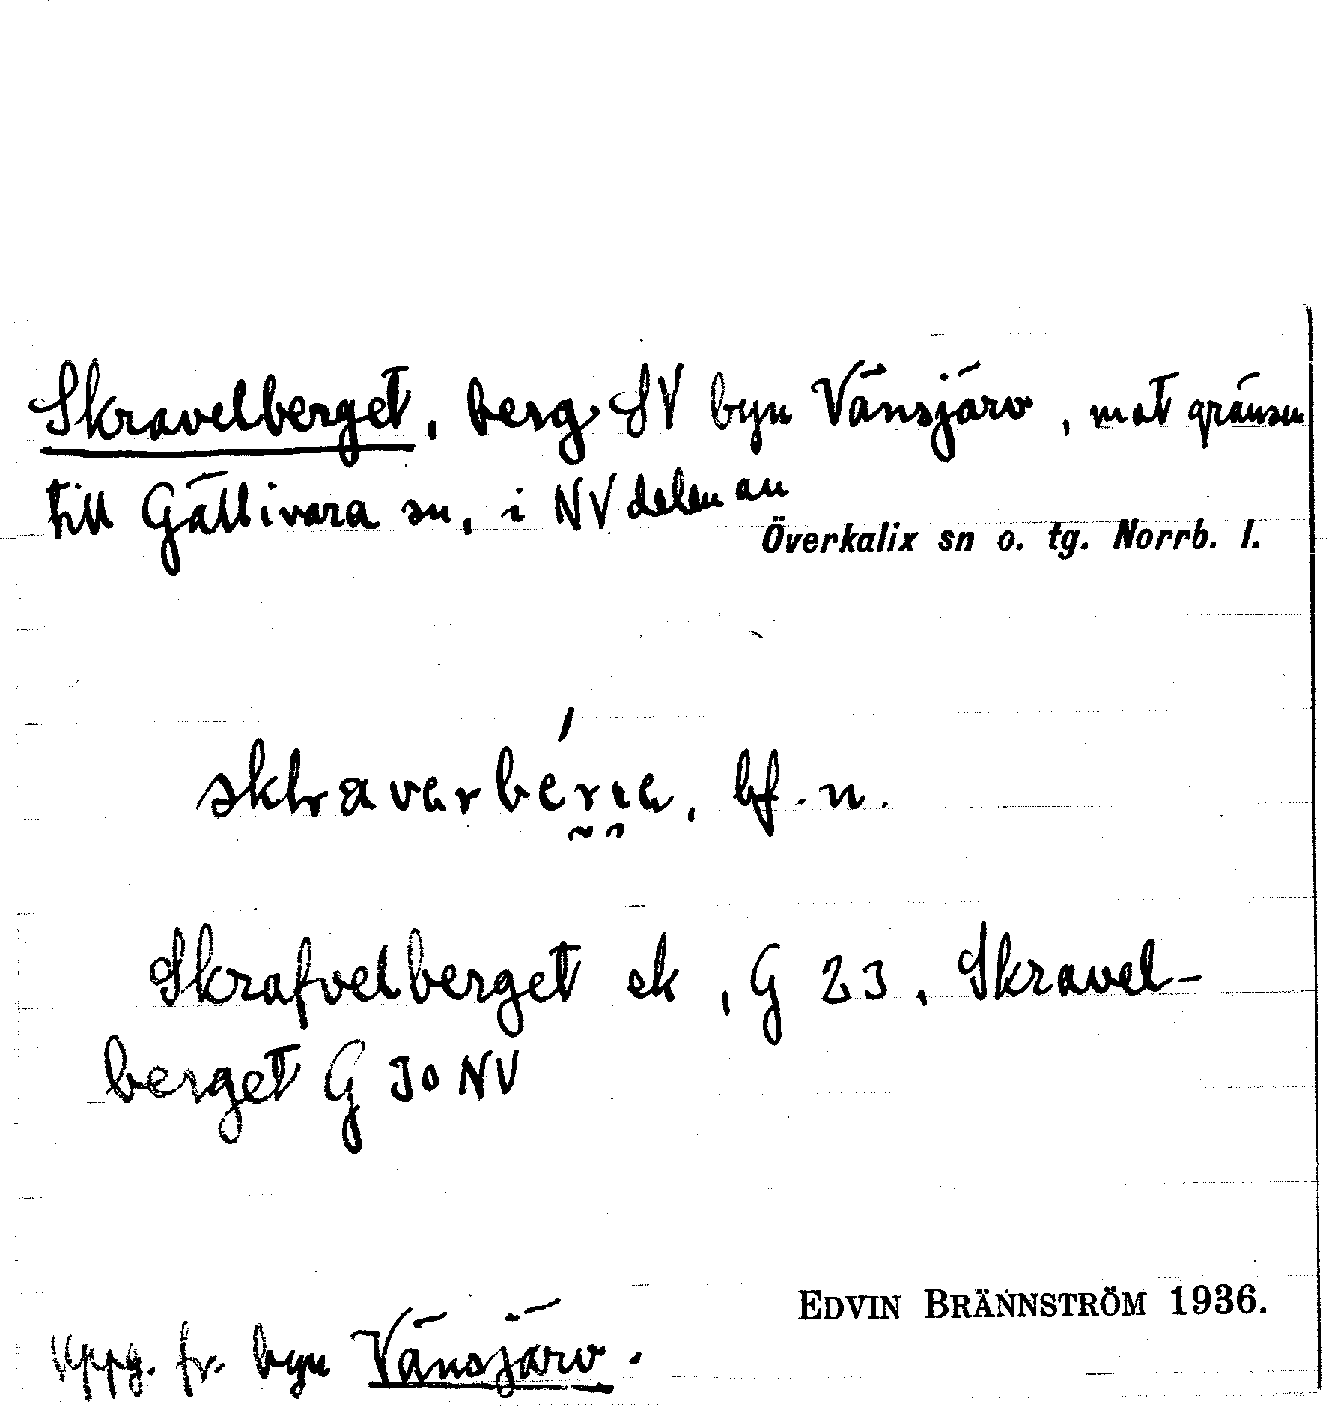 Skravelberget, berg SV byn Vänsjärv, mot gränsen
till Gällivara sn, i NV delen av
Överkalix sn o. tg. Norrb. l.
bf. n.
Skrafvelberget ek, G 23, Skravel-
berget G 30 NV
EDVIN BRÄNNSTRÖM 1936.
Uppg. fr. byn Vänsjärv.